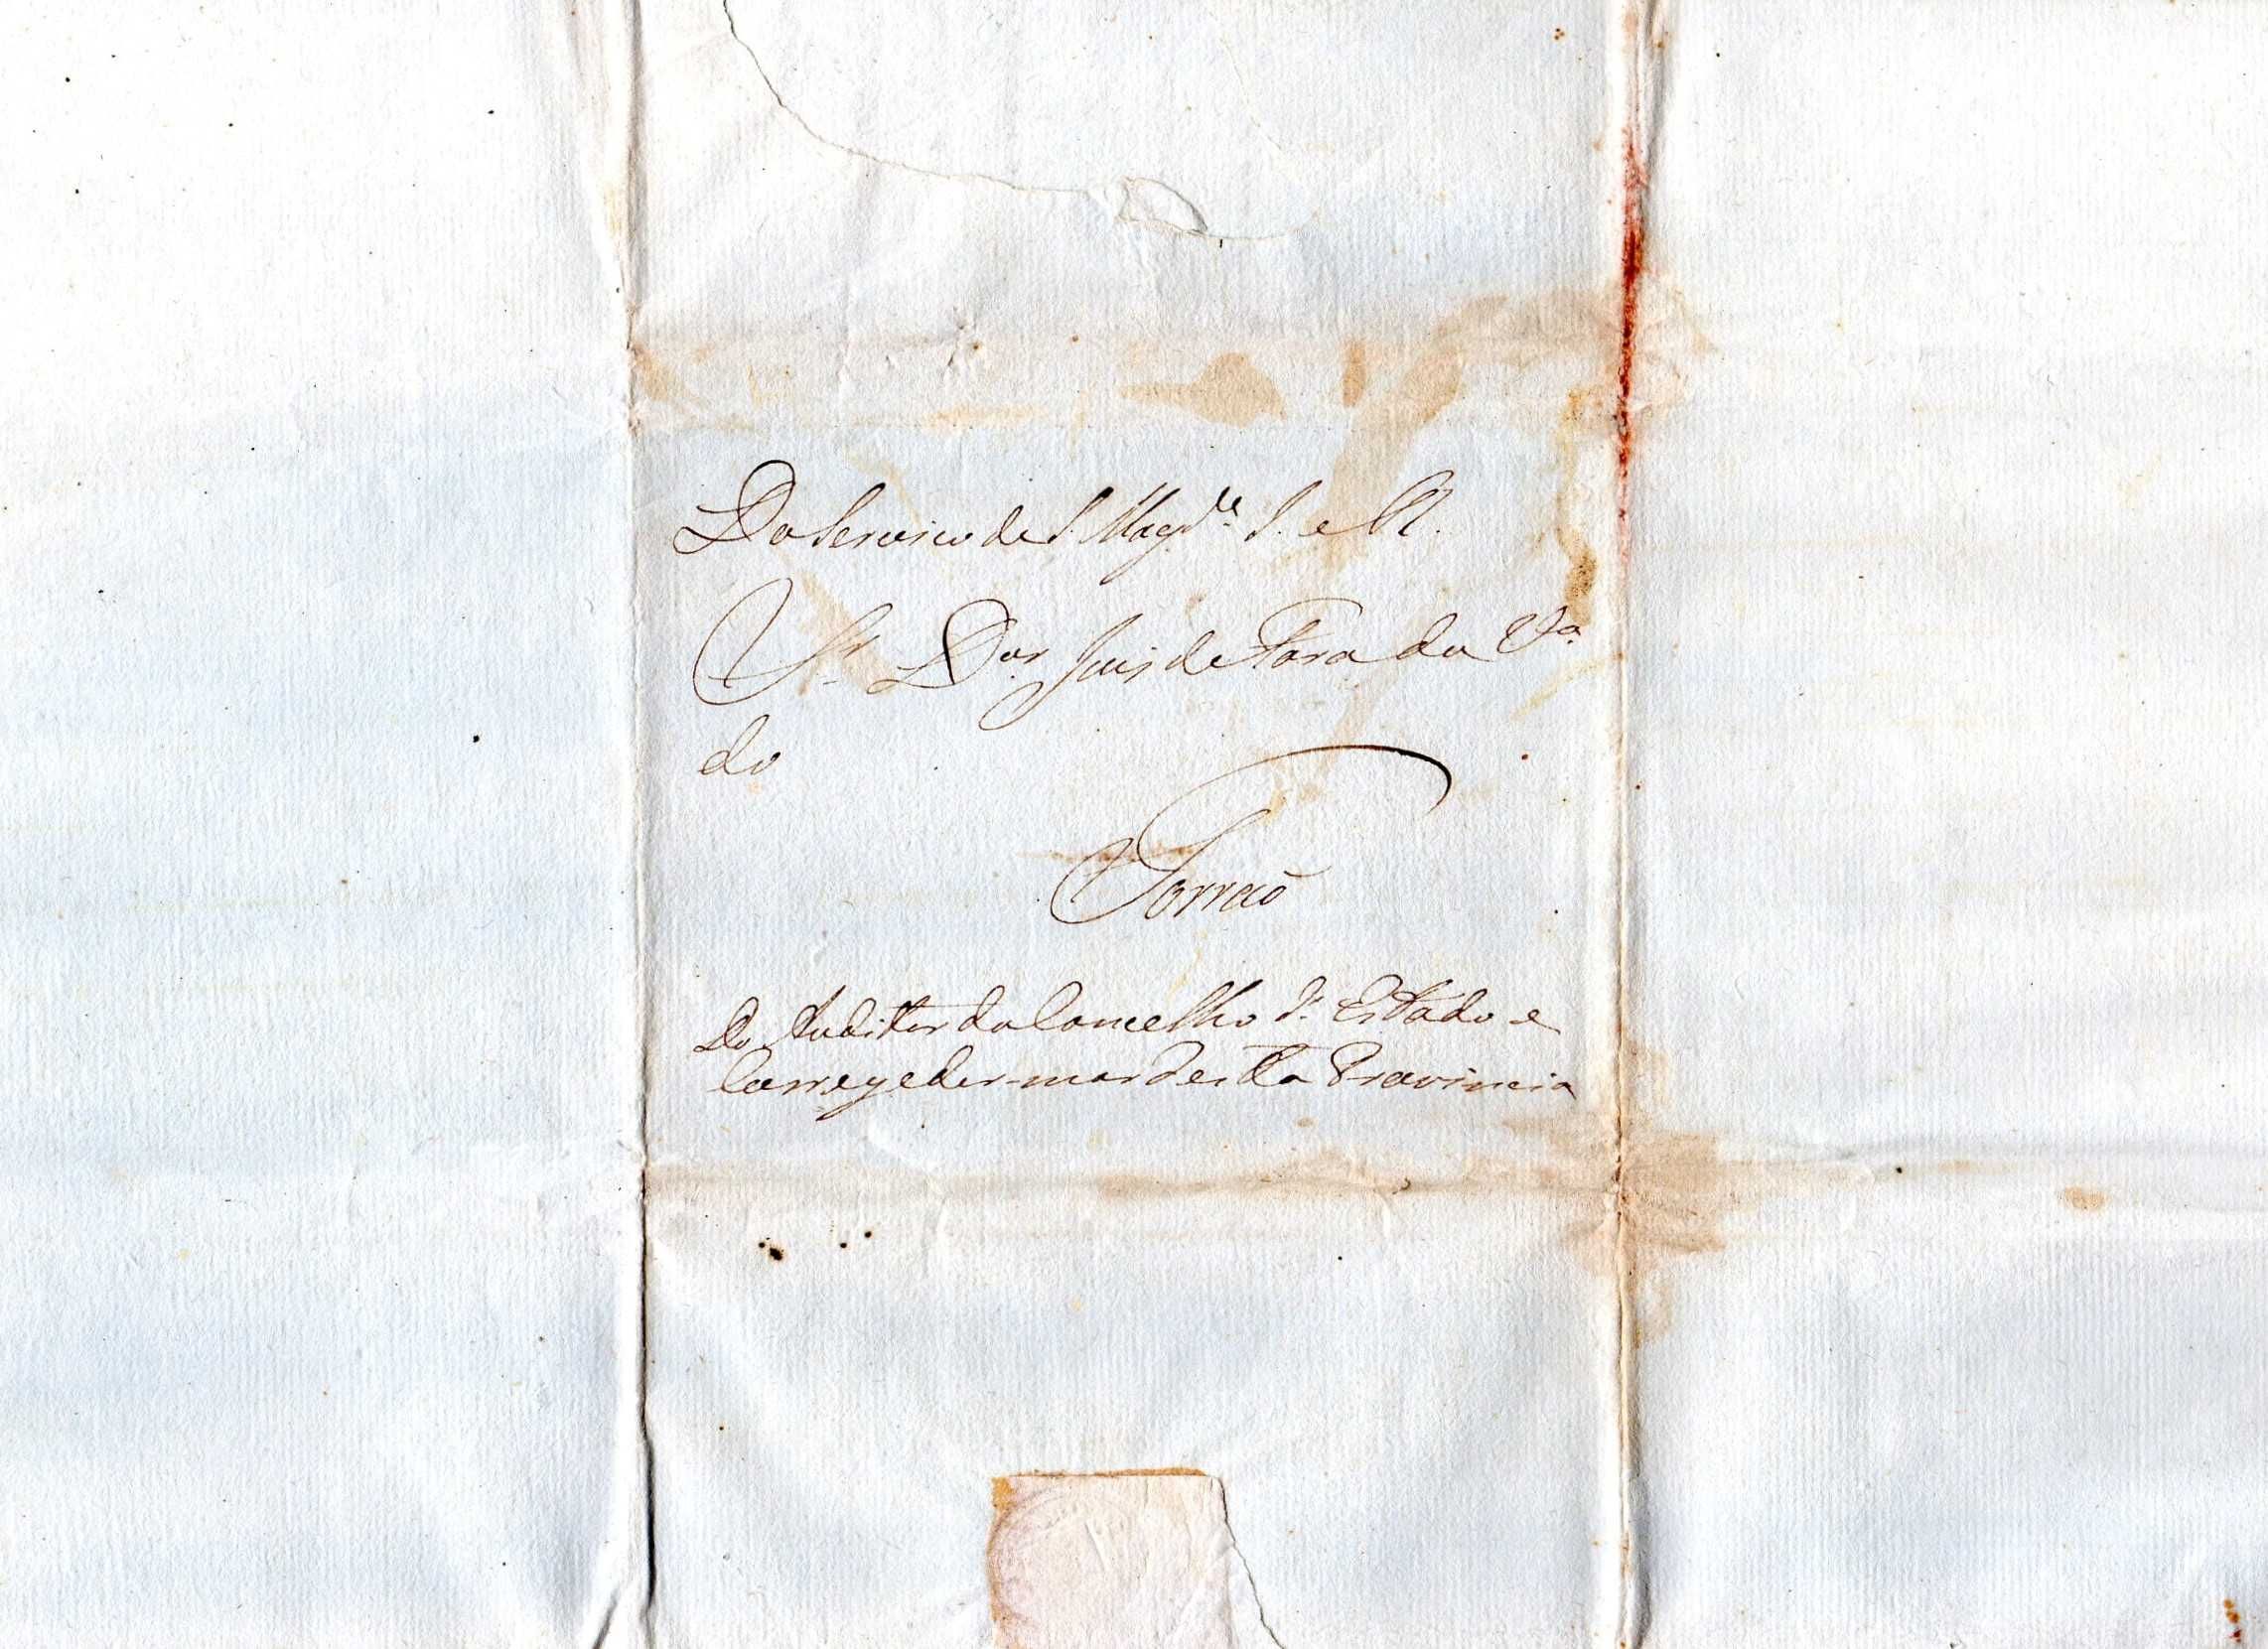 Do Serviço de S. Magde. I. e R.
Sr. Dor. Juis de Fora da Va.
do
Torraõ
Do Auditor do Concelho d'Estado e
Corregedor-mor desta Provincia